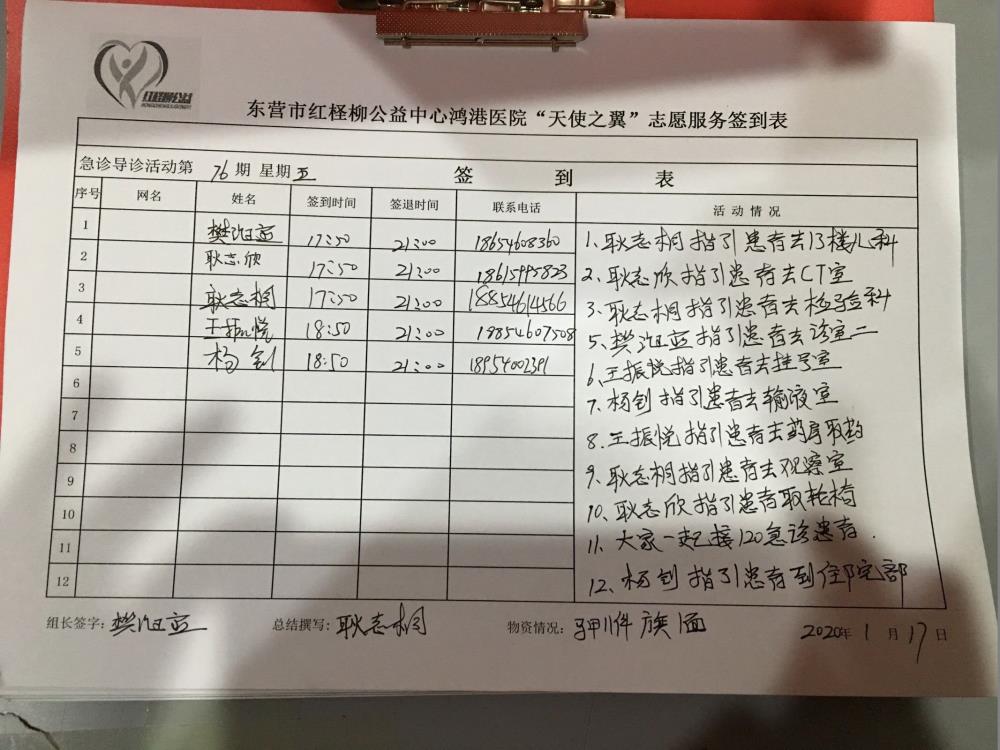 红柽柳公益
东营市红柽柳公益中心鸿港医院“天使之翼”志愿服务签到表
急诊导诊活动第 76 期 星期五 签 到 表
序号 网名 姓名 签到时间 签退时间 联系电话 活动情况
1 17:50 21:00 18654608360
2 耿志欣 17:50 21:00 18615995823
3 耿志桐 17:50 21:00 18854614566
4 王振悦 18:50 21:00 18854607508
5 杨钊 18:50 21:00 18954002391
6
7
8
9
10
11
12
1、耿志桐指引患者去13楼儿科
2、耿志欣指引患者去CT室
3、耿志桐指引患者去检验科
5、樊 指引患者去诊室二
6、王振悦指引患者去挂号室
7、杨钊指引患者去输液室
8、王振悦指引患者去药房取药
9、耿志桐指引患者去观察室
10、耿志欣指引患者取轮椅
11、大家一起接120急诊患者.
12、杨钊指引患者到住院部
组长签字: 樊 总结撰写: 耿志桐 物资情况: 旗1面 2020年1月17日